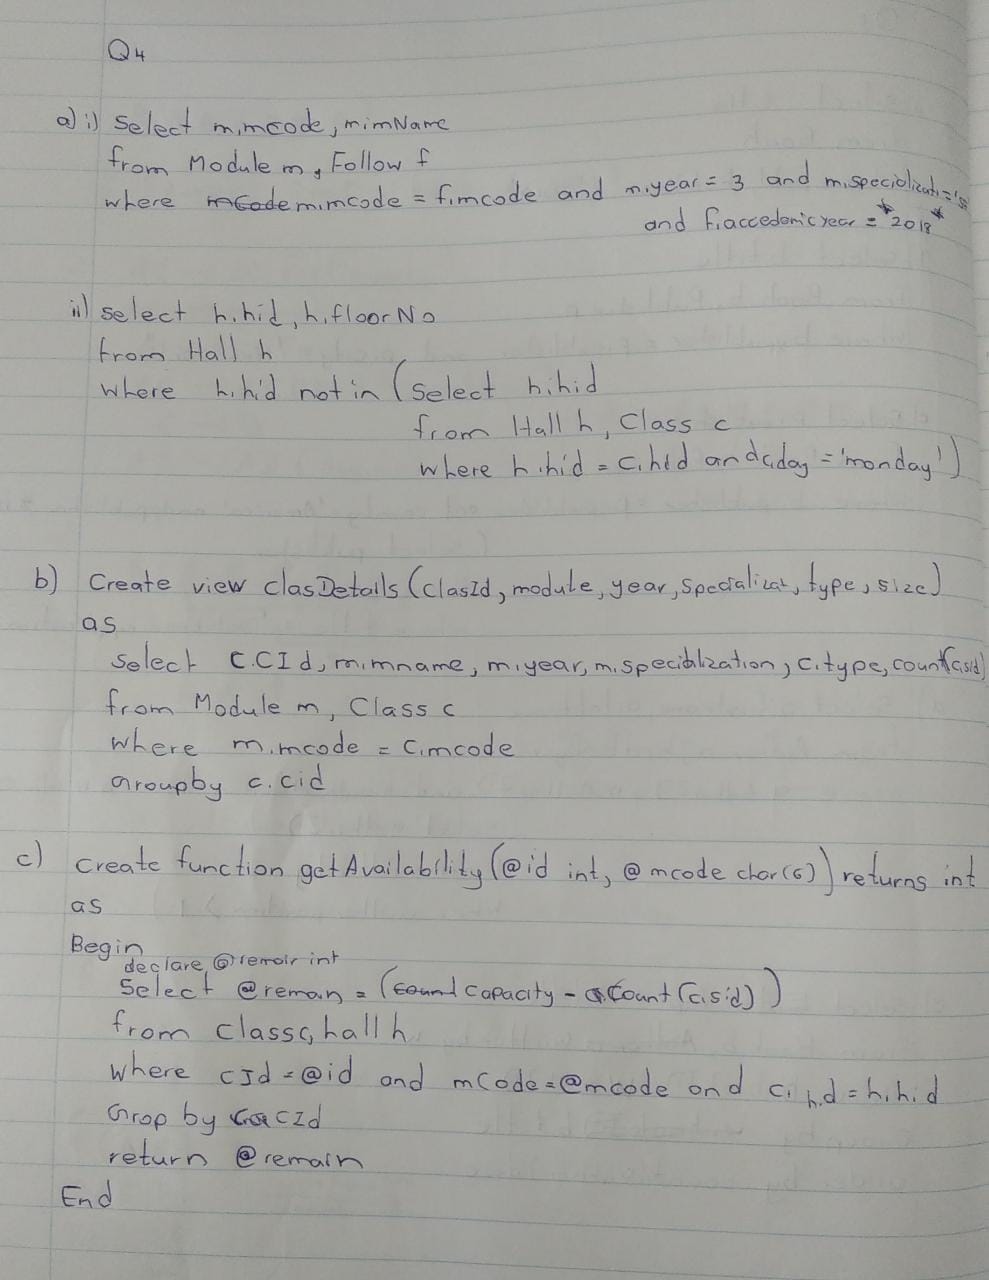 Q4
a) i) Select m.mcode, m.mName
from Module m, Follow f
where m.mcode = f.mcode and m.year = 3 and m.specializati =
and f.accedemicyear = '2018'
ii) select h.hid, h.floorNo
from Hall h
where h.hid not in (select h.hid
from Hall h, Class c
where h.hid = c.hid and c.day = 'monday')
b) Create view clasDetails (clasId, module, year, specializat, type, size)
as
select C.CId, m.mname, m.year, m.specialization, c.type, count(c.sid)
from Module m, Class c
where m.mcode = c.mcode
Groupby c.cid
c) create function getAvailability (@id int, @mcode char(6)) returns int
as
Begin
declare @remain int
Select @reman = (capacity - Count (c.sid))
from class c, hall h
where cId = @id and mCode = @mcode and c.hid = h.hid
Grop by cId
return @remain
End